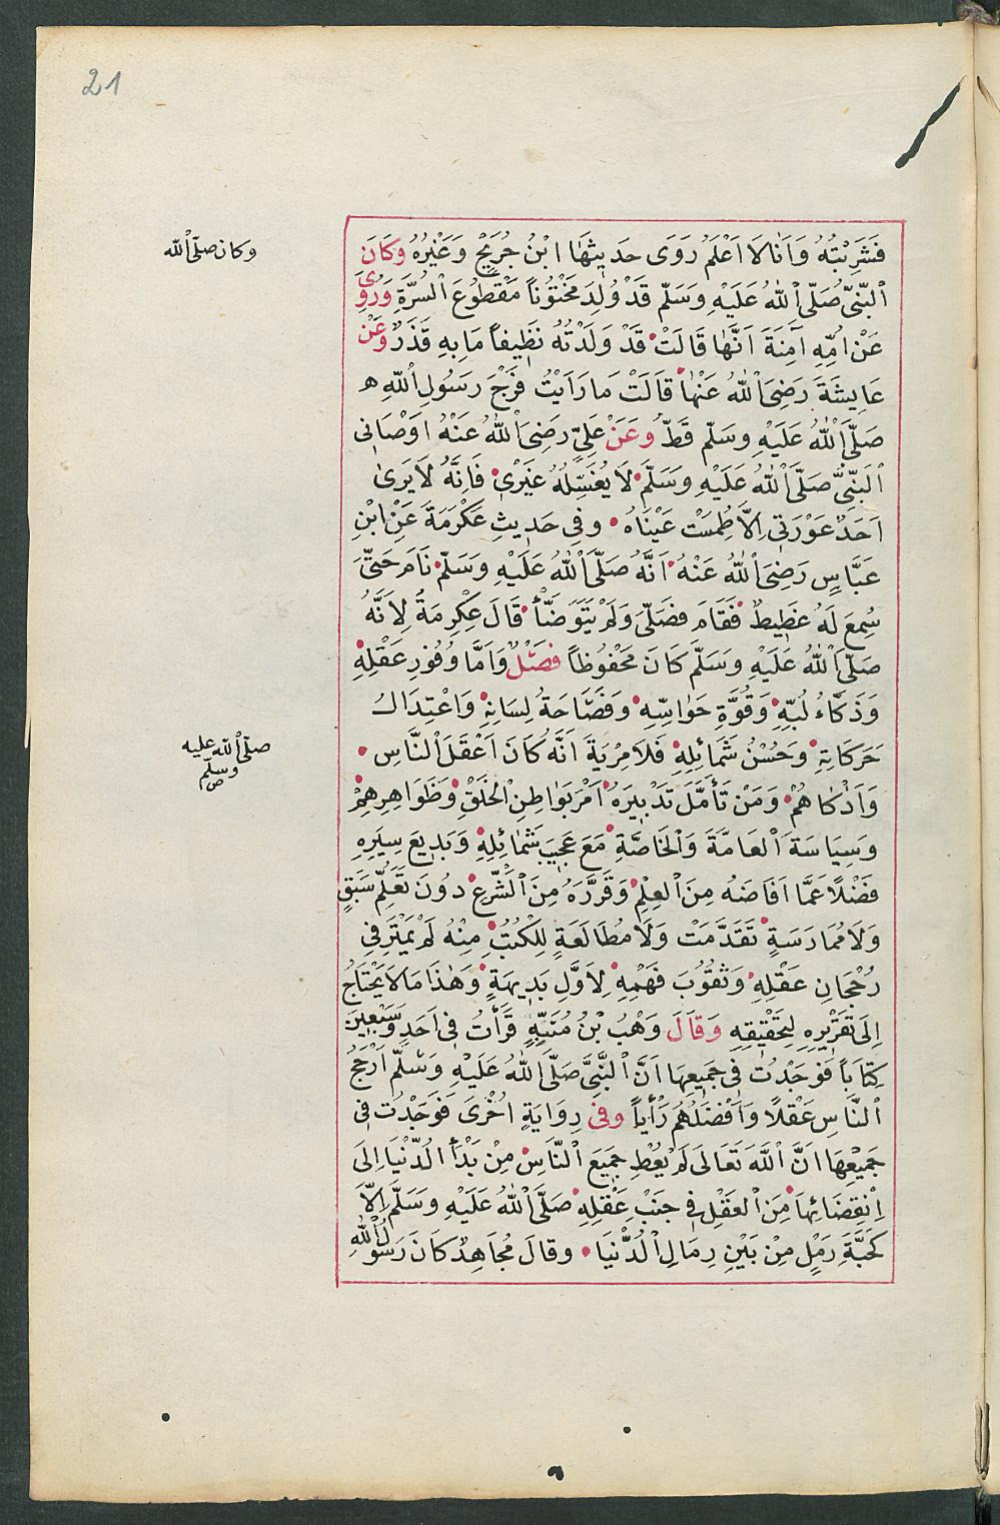 21
فَشَرِبْتُهُ وَاَنَا لَا اَعْلَمُ رَوَى حَدِيثَهَا ابْنُ جُرَيْجٍ وَغَيْرُهُ وَكَانَ
وكان صلّى الله
النَّبِىُّ صَلَّى اللهُ عَلَيْهِ وَسَلَّم قَدْ وُلِدَ مَخْتُوناً مَقْطُوعَ السُّرَّةِ وَرُوِىَ
عَنْ اُمِّهِ آمِنَةَ اَنَّهَا قَالَتْ قَدْ وَلَدْتُهُ نَظِيفاً مَا بِهِ قَذَرٌ وَعَنْ
عَايِشَةَ رَضِىَ اللهُ عَنْهَا قَالَتْ مَا رَاَيْتُ فَرْجَ رَسُولِ اللهِ ه
صَلَّى اللهُ عَلَيْهِ وَسَلّم قَطُّ وَعَنْ عَلِىٍّ رَضِىَ اللهُ عَنْهُ اَوْصَانِى
النَّبِىُّ صَلَّى اللهُ عَلَيْهِ وَسَلَّمَ لَا يُغَسِّلُهُ غَيْرِى فَاِنَّهُ لَا يَرَى
اَحَدٌ عَوْرَتِى اِلَّا طُمِسَتْ عَيْنَاهُ وفِى حَدِيثِ عَكْرَمَةَ عَنِ ابْنِ
عَبَّاسٍ رَضِىَ اللهُ عَنْهُ اَنَّهُ صَلَّى اللهُ عَلَيْهِ وَسَلّم نَامَ حَتَّى
سُمِعَ لَهُ غَطِيطٌ فَقَامَ فَصَلَّى وَلَمْ يَتَوَضَّأْ قَالَ عِكْرِمَةُ لِاَنَّهُ
صَلَّى اللهُ عَلَيْهِ وَسَلَّم كَانَ مَحْفُوظاً فصَلٌ وَاَمَّا وُفُورِ عَقْلِهِ
وَذَكَاءُ لُبِّهِ وَقُوَّةِ حَوَاسِّهِ وَفَصَاحَةُ لِسَانِهِ وَاعْتِدَالُ
حَرَكَاتِهِ وَحُسْنُ شَمَائِلِهِ فَلَا مِرْيَةَ اَنَّهُ كَانَ اَعْقَلَ النَّاسِ
صلّى الله عليه
وسلّم
ص
وَاَذْكَاهُمْ وَمَنْ تَأَمَّلَ تَدْبِيرَهُ اَمْرَ بَوَاطِنِ الْخَلْقِ وَظَوَاهِرِهِمْ
وَسِيَاسَةَ الْعَامَّةَ وَالْخَاصَّةِ مَعَ عَجِيبِ شَمَائِلِهِ وَبَدِيعَ سِيَرِهِ
فَضْلًا عَمَّا اَفَاضَهُ مِنَ الْعِلْمِ وَقَرَّرَهُ مِنَ الشَّرْعِ دُونَ تَعَلُّمٍ سَبَقٍ
وَلَا مُمَارَسَةٍ تَقَدَّمَتْ وَلَا مُطَالَعَةٍ لِلْكُتُبِ مِنْهُ لَمْ يَمْتَرِ فِى
رُجْحَانِ عَقْلِهِ وَثُقُوبَ فَهْمِهِ لِاَوَّلِ بَدِيهَةٍ وَهٰذَا مَا لَا يَحْتَاجُ
اِلَى تَقْرِيرِهِ لِتَحْقِيقِهِ وَقَالَ وَهْبُ بْنُ مُنَبِّهٍ قَرَأْتُ فِى اَحَدٍ وَسَبْعِينَ
كِتَاباً فَوَجَدْتُ فِى جَمِيعِهَا اَنَّ النَّبِىَّ صَلَّى اللهُ عَلَيْهِ وَسَلّم اَرْجَحُ
النَّاسِ عَقْلًا وَاَفْضَلُهُمْ رَأْياً وَفِى رِوَايَةٍ اُخْرَى فَوَجَدْتُ فِى
جَمِيعِهَا انَّ اللّٰهَ تَعَالَى لَمْ يُعْطِ جَمِيعَ النَّاسِ مِنْ بَدْأِ الدُّنْيَا اِلَى
اِنْقِضَائِهَا مِنَ الْعَقْلِ فِى جَنْبِ عَقْلِهِ صَلَّى اللهُ عَلَيْهِ وَسَلَّم اِلَّا
كَحَبَّةِ رَمْلٍ مِنْ بَيْنِ رِمَالِ الدُّنْيَا وَقَالَ مُجَاهِدٌ كَانَ رَسُولُ اللهِ